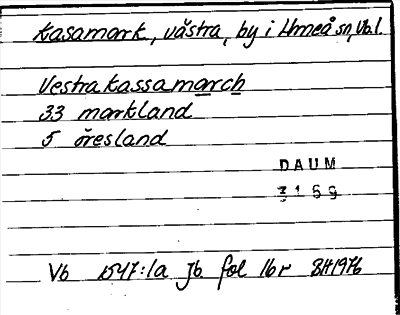 Kasamark, västra, by i Umeå sn, Vb.l.
Vestra Kassamarch
33 markland
5 öresland
DAUM
3169
Vb 1547:1a Jb fol 16r BH1976